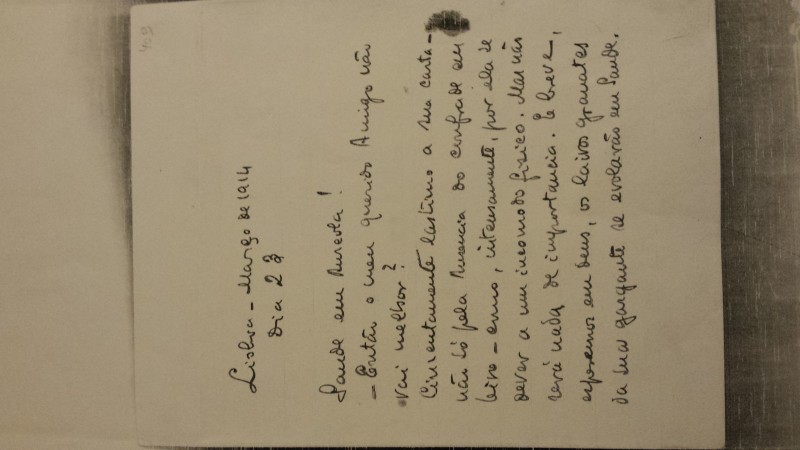 Lisboa – Março de 1914
Dia
Saude em Aureola!
– Então o meu querido Amigo não
vai melhor?
Cinzentamente lastimo a sua carta –
não só pela ausencia do confrade em
intensamente, por ela se
dever a um incomodo fisico. Mas não
será nada de importancia. E breve,
esperemos em Deus, os laivos granates
da sua garganta se evolarão em Saude.